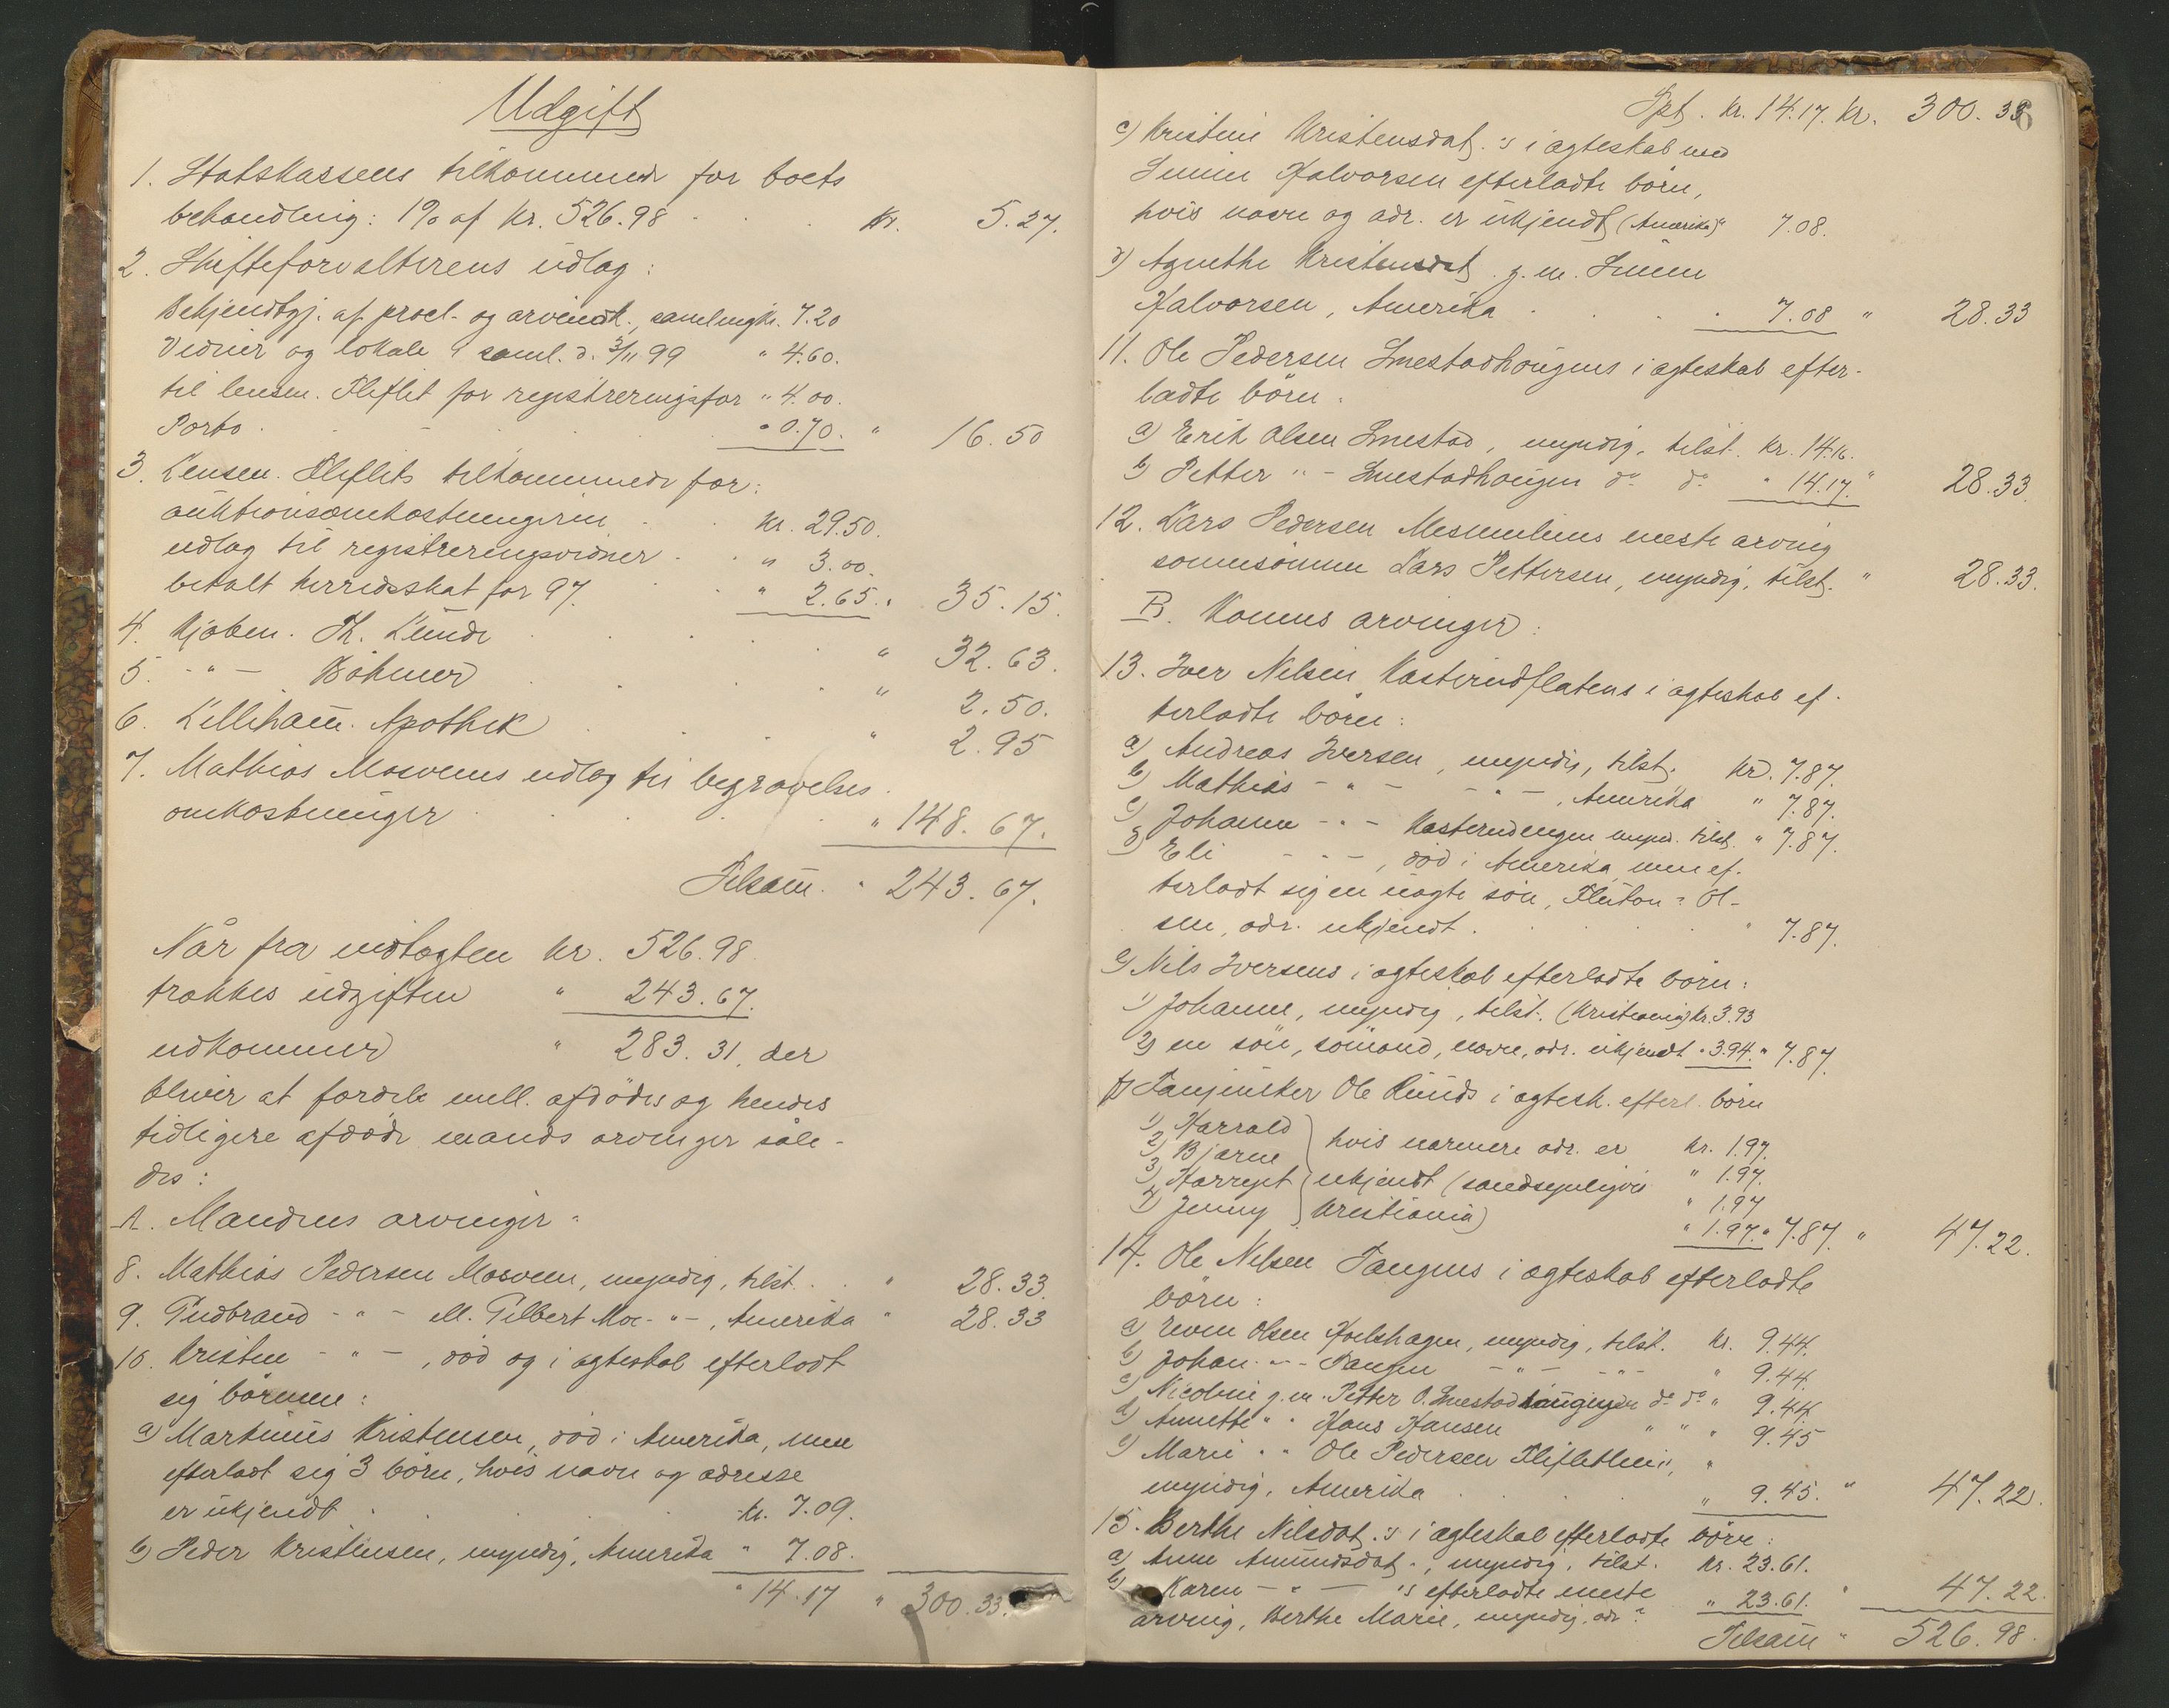 Udgift
1. Statskassens tilkommende for boets
behandling: 1% af kr. 526.98 kr. 5.27.
2. Skifteforvalterens udlæg:
Bekjendtgj. af procl. og arveindk., samling kr. 7.20
Vidner og lokale i saml. d. 3/11 99 " 4.60.
til lensm. Fliflet for registreringsfor " 4.00.
Porto " 0.70. " 16.50
3. Lensm. Fliflets tilkommende for:
auktionsomkostningerne kr. 29.50.
udlæg til registreringsvidner " 3.00.
betalt herredsskat for 97. " 2.65. " 35.15.
4. Kjøbm. Th. Lunde " 32.63.
5. - " - Böhmer " 2.50.
6. Lilleham. Apothek " 2.95
7. Mathias Mosvens udlæg til begravelses
omkostninger " 148.67.
Tilsam. " 243.67.
Når fra indtægten kr. 526.98
trækkes udgiften " 243.67.
udkommer " 283.31, der
bliver at fordele mell. afdödes og hendes
tidligere afdöde mands arvinger såle-
des:
A. Mandens arvinger:
8. Mathias Pedersen Mosveen, myndig, tilst. " 28.33.
9. Gudbrand - " - ell. Gilbert Moe - " -, Amerika " 28.33
10. Kristen - " -, död og i ægteskab efterladt
sig börnene:
a) Martinus Kristensen, död i Amerika, men
efterladt sig 3 börn, hvis navn og adresse
er ukjendt kr. 7.09.
b) Peder Kristensen, myndig, Amerika " 7.08.
" 14.17 " 300.33.
Tpt. kr. 14.17. kr. 300.33
6
c) Kristine Kristensdat.'s i ægteskab med
Simen Halvorsen efterladte börn,
hvis navn og adr. er ukjendt (Amerika) " 7.08.
d) Agnethe Kristensdat. g. m. Simen
Halvorsen, Amerika " 7.08 " 28.33
11. Ole Pedersen Smestadhaugens i ægteskab efter-
ladte börn:
a) Erik Olsen Smestad, myndig, tilst. kr. 14.16.
b) Petter " - Smestadhaugen do do " 14.17. " 28.33.
12. Lars Pedersen Mesnaliens eneste arving
sönnesönnen Lars Pettersen, myndig, tilst. " 28.33.
B. Konens arvinger:
13. Iver Nilsen Kasterudflatens i ægteskab ef-
terladte börn:
a) Andreas Iversen, myndig, tilst. kr. 7.87.
b) Mathias - " - - " -, Amerika " 7.87.
c) Johanne - " - Kasterudengen mynd. tilst. " 7.87.
d) Eli - " -, död i Amerika, men ef-
terladt sig en uægte sön, Ol-
sen, adr. ukjendt. " 7.87.
e) Nils Iversens i ægteskab efterladte börn:
1) Johanne, myndig, tilst. (Kristiania) kr. 3.93
2) en sön, sömand, navn, adr. ukjendt " 3.94. " 7.87.
f) Ole Lunds i ægtesk. efterl. börn
1) Harrald } hvis nærmere adr. er kr. 1.97.
2) Bjarne } ukjendt (sandsynligvis " 1.97.
3) Harryet } Kristiania) " 1.97
4) Jenny } " 1.97. " 7.87. " 47.22.
14. Ole Nilsen Tangens i ægteskab efterladte
börn:
a) Even Olsen Hoelshagen, myndig, tilst. kr. 9.44.
b) Johan - " - Tangen - " - - " - " 9.44.
c) Nicoline g. m. Petter O. Smestadhaugen do do " 9.44.
d) Annette " " Hans Hansen " " " 9.45
e) Marie " " Ole Pedersen Fliflethlien, "
myndig, Amerika " 9.45. " 47.22.
15. Berthe Nilsdat.'s i ægteskab efterladte börn:
a) Anne Amundsdat., myndig, tilst. kr. 23.61.
b) Karen - " - 's efterladte eneste
arving, Berthe Marie, myndig, adr. ? " 23.61. " 47.22.
Tilsam " 526.98.